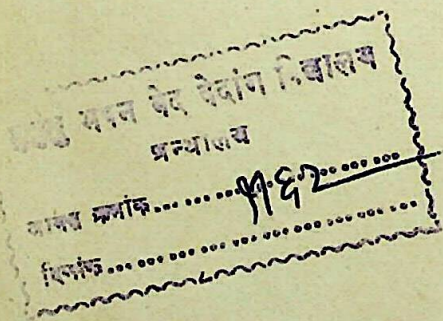 भवन वेद वेदांग विद्यालय
ग्रन्थालय
आगत क्रमांक......५६२......
दिनांक......